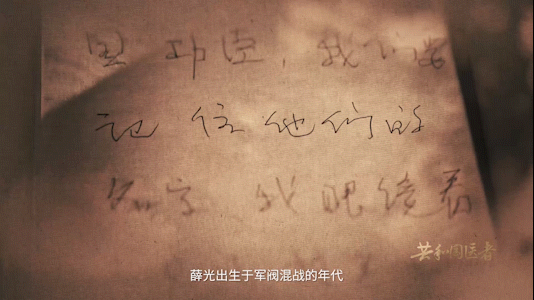 功臣，我们要
记住他们的
名字 我眼
共和国医者
薛光出生于军阀混战的年代